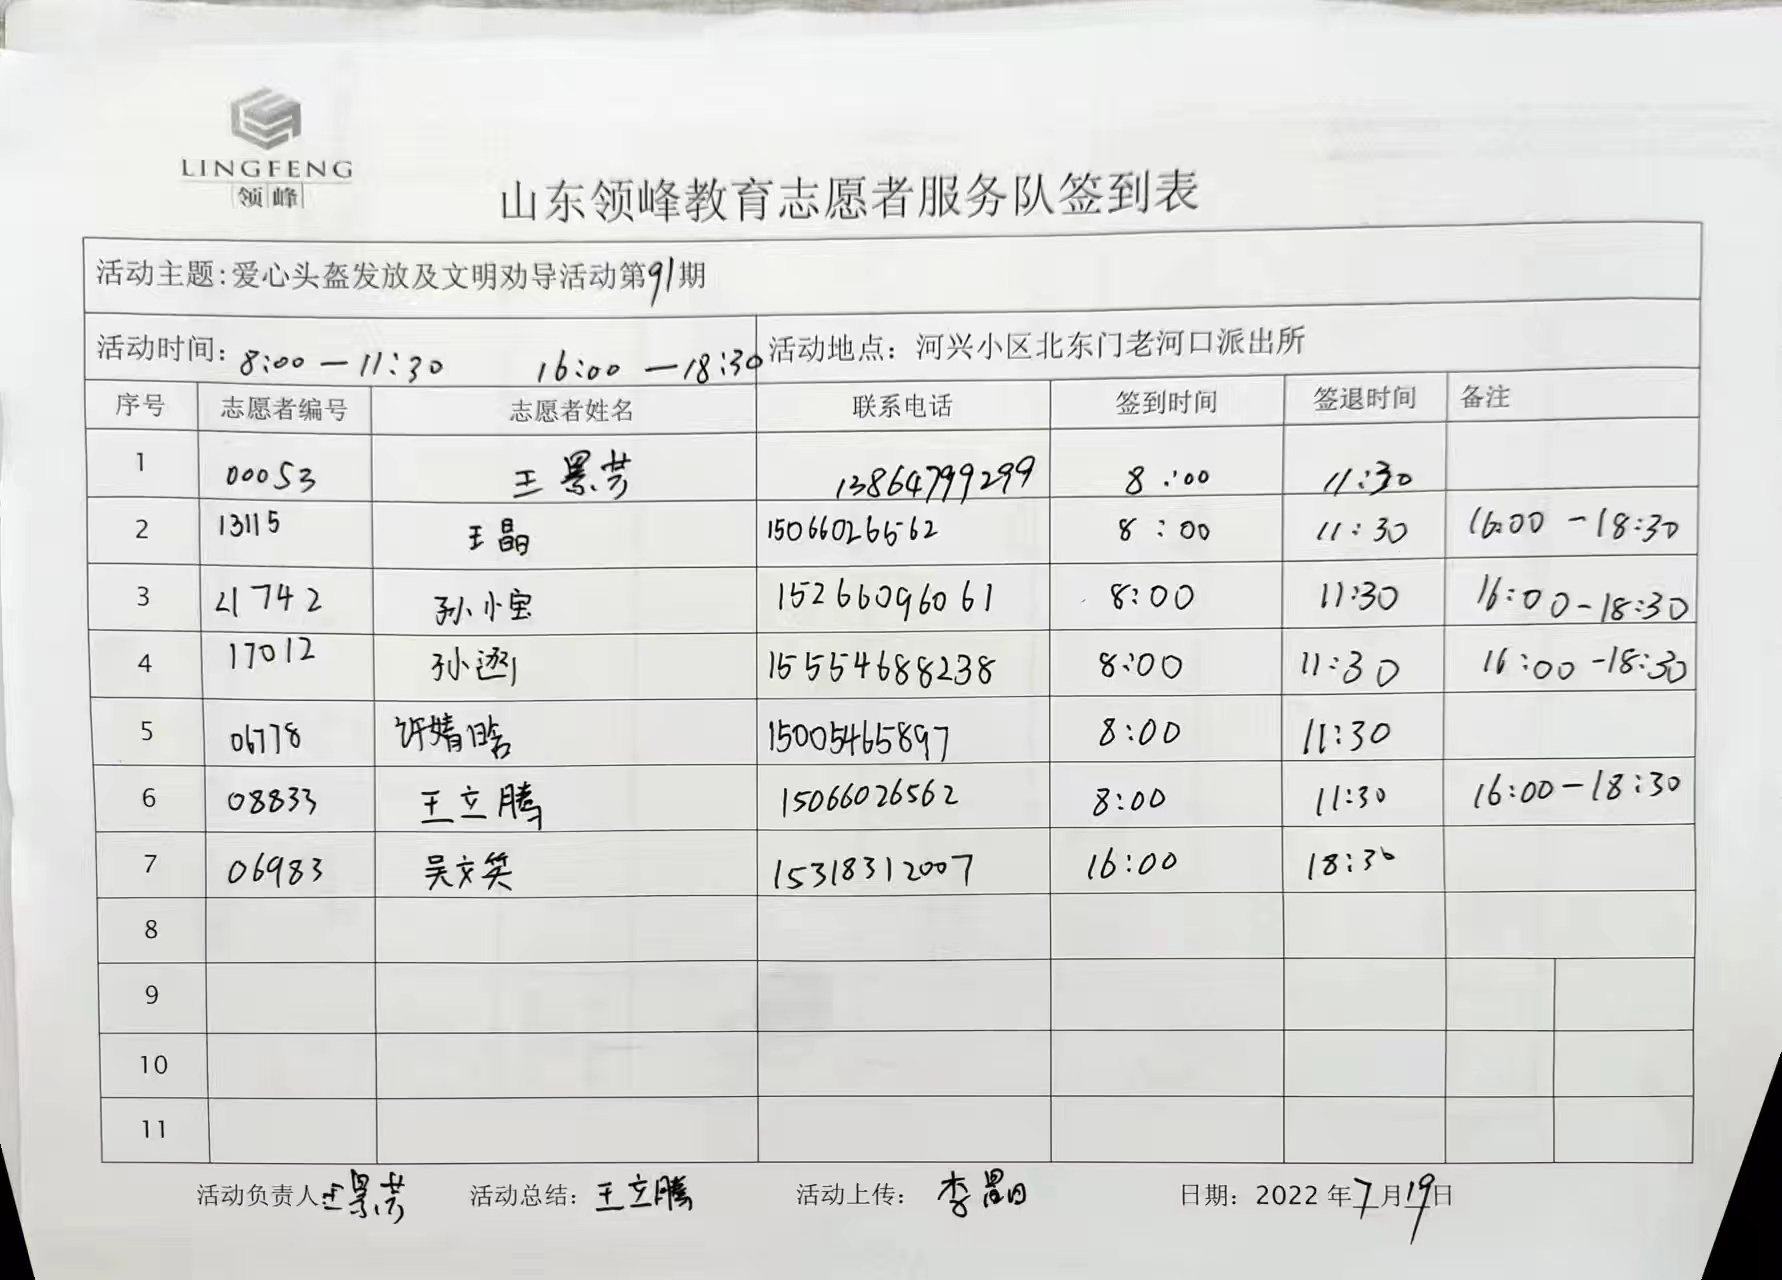 LINGFENG
领峰
山东领峰教育志愿者服务队签到表
活动主题:爱心头盔发放及文明劝导活动第91期
活动时间: 8:00—11:30 16:00—18:30 活动地点: 河兴小区北东门老河口派出所
序号 志愿者编号 志愿者姓名 联系电话 签到时间 签退时间 备注
1 00053 王景芳 13864799299 8:00 11:30
2 13115 王晶 15066026562 8:00 11:30 16:00-18:30
3 21742 孙小宝 15266096061 8:00 11:30 16:00-18:30
4 17012 孙 15554688238 8:00 11:30 16:00-18:30
5 06778 许婧晗 15005465897 8:00 11:30
6 08833 王立腾 15066026562 8:00 11:30 16:00-18:30
7 06983 吴文笑 15318312007 16:00 18:30
8
9
10
11
活动负责人:王景芳 活动总结: 王立腾 活动上传: 李 日期: 2022年7月19日